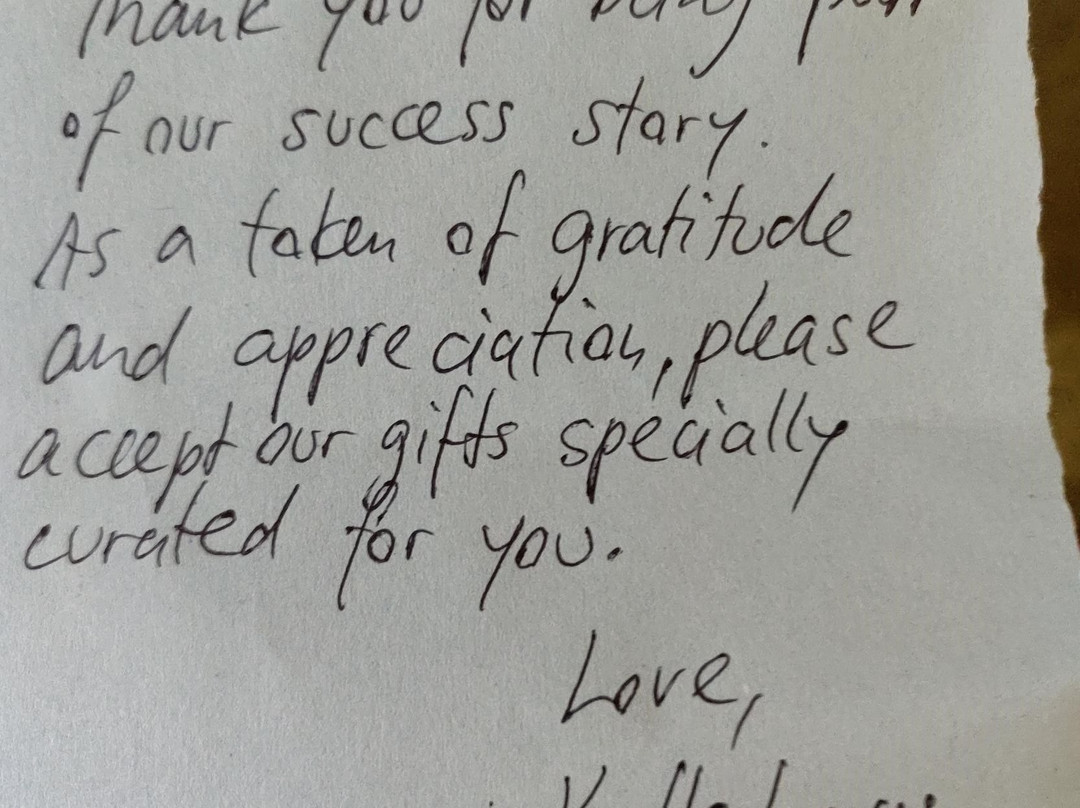 Thank you for being part
of our success story.
As a token of gratitude
and appreciation, please
accept our gifts specially
curated for you.
Love,